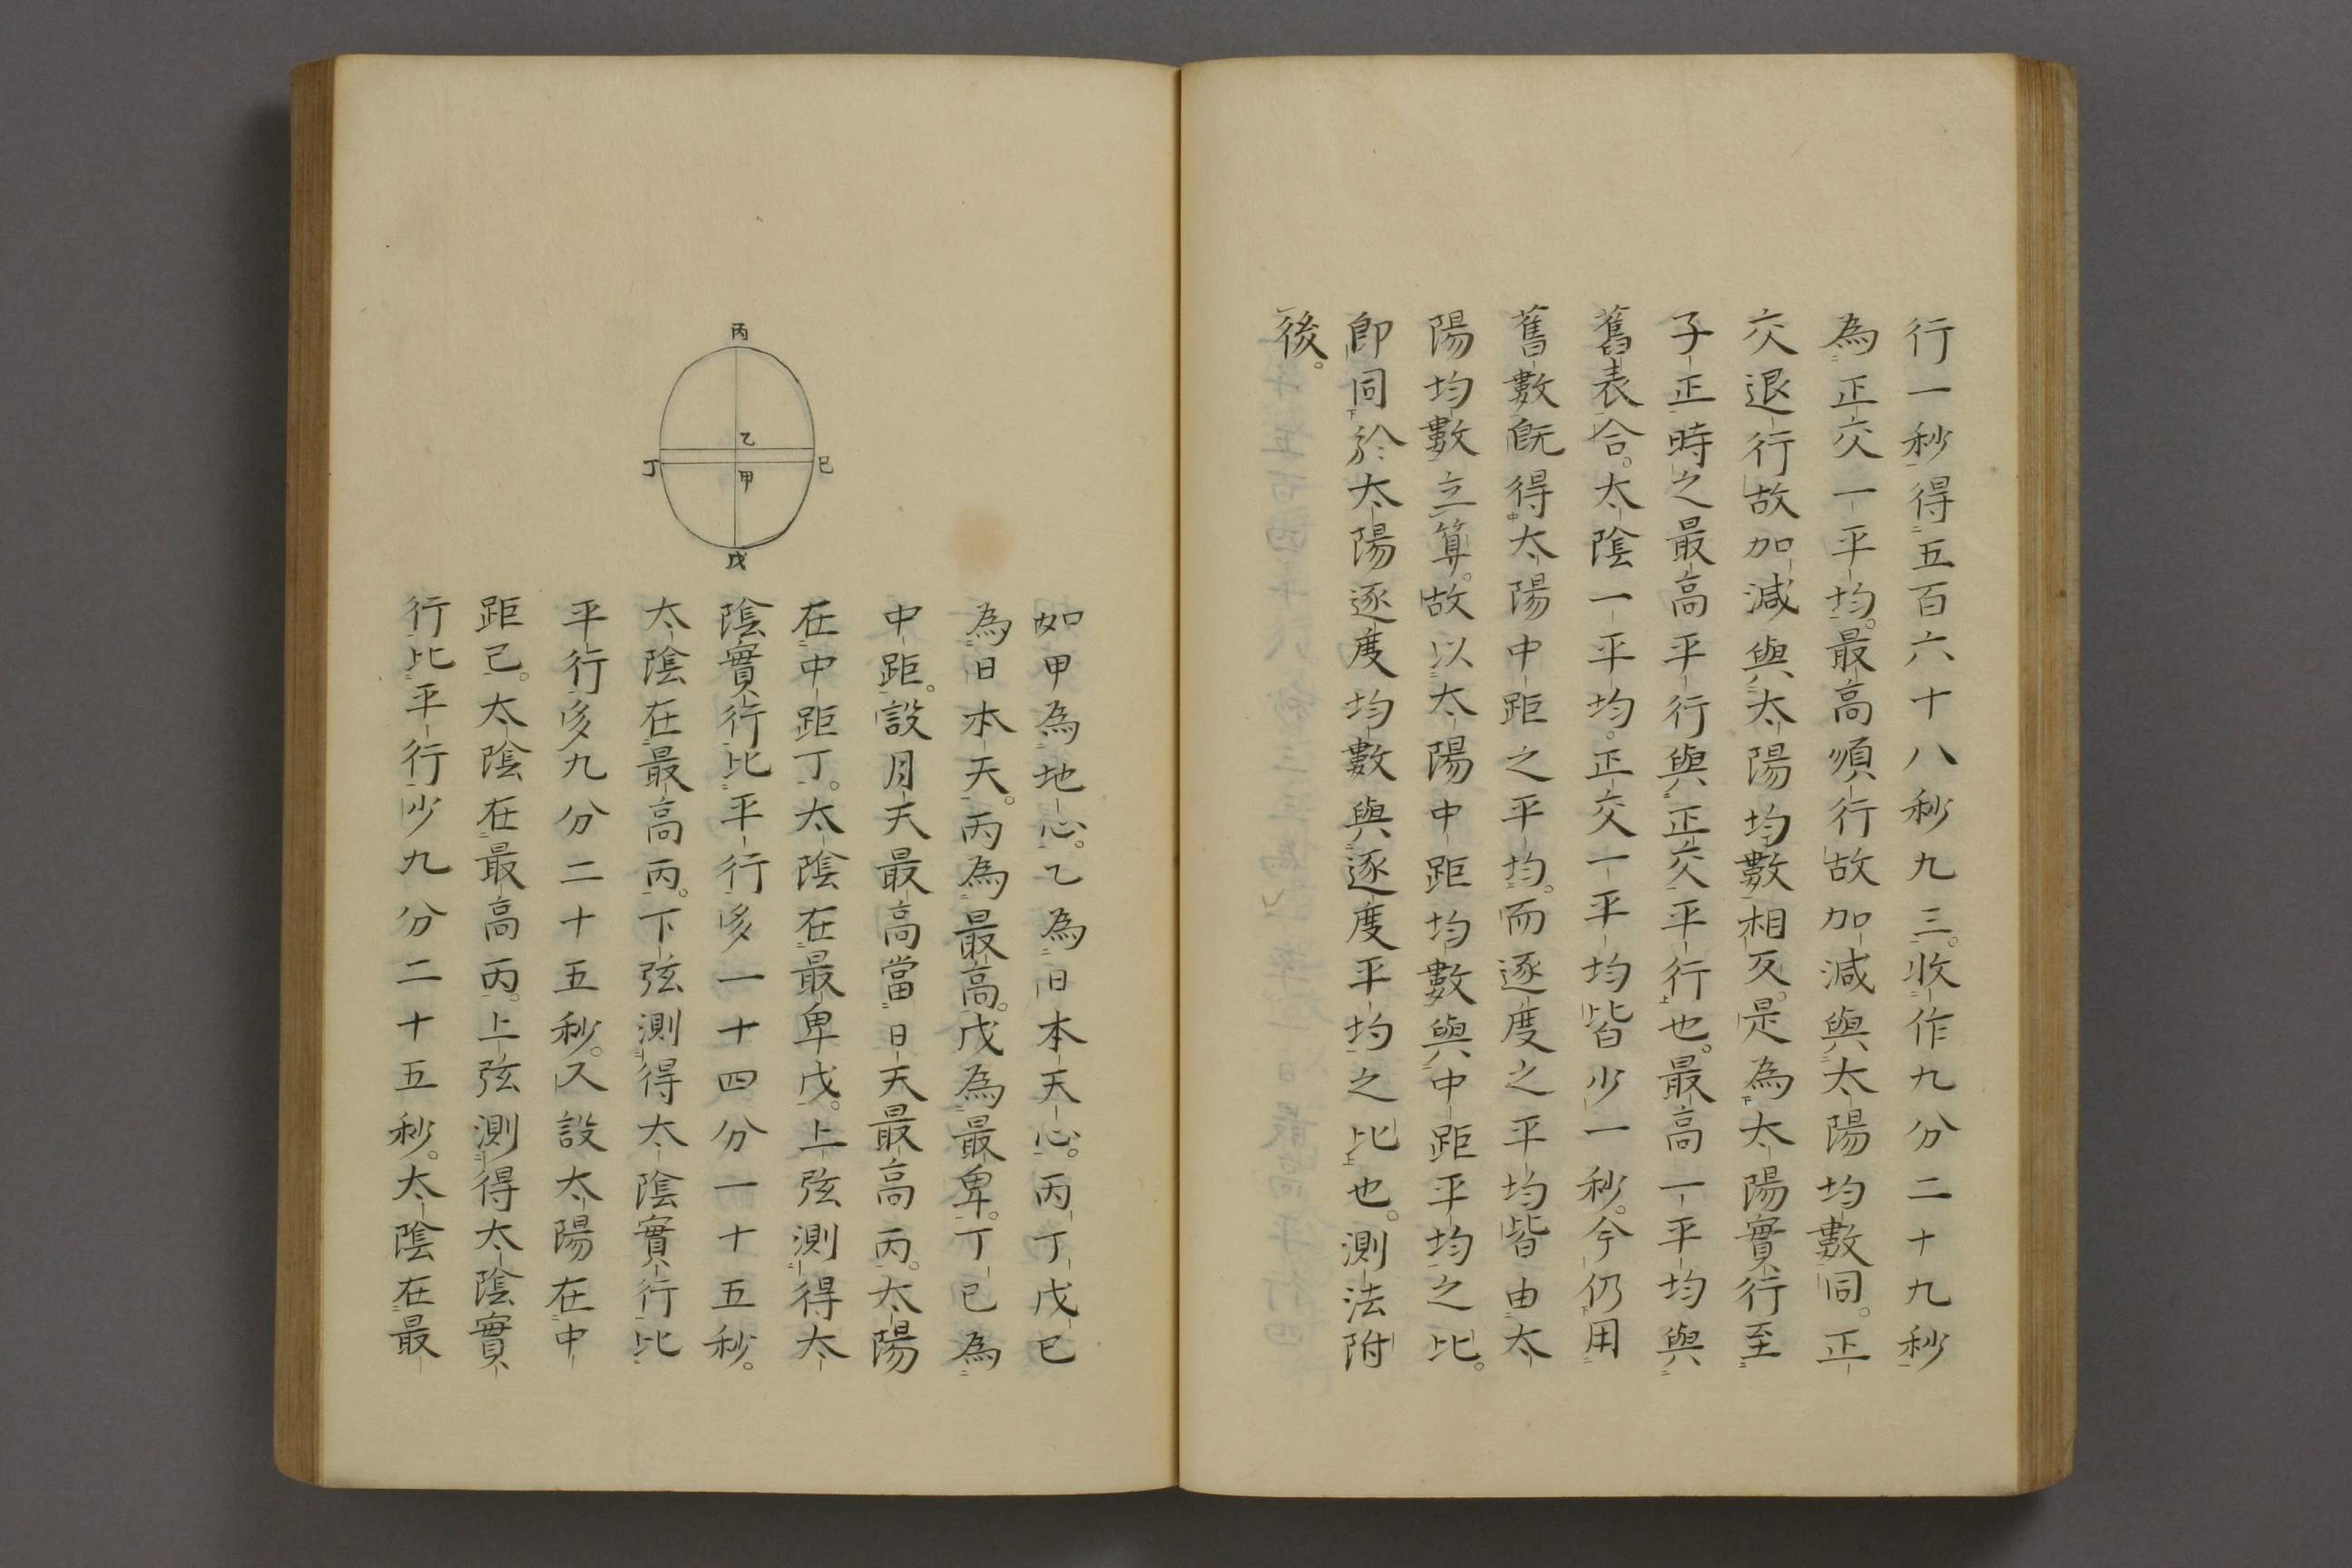 行一秒得五百六十八秒九三。收作九分二十九秒
為正交一平均。最高順行故加減與太陽均數同。正
交退行故加減與太陽均數相反。是為太陽實行至
子正時之最高平行與正交平行也。最高一平均與
舊表合。太陰一平均。正交一平均皆少一秒。今仍用
舊數既得太陽中距之平均。而逐度之平均皆由太
陽均數立算。故以太陽中距均數與中距平均之比。
即同於太陽逐度均數與逐度平均之比也。測法附
後。
丙
乙
丁
巳
甲
戊
如甲為地心。乙為日本天心。丙丁戊巳
為日本天。丙為最高。戊為最卑。丁巳為
中距。設月天最高當日天最高丙。太陽
在中距丁。太陰在最卑戊。上弦測得太
陰實行比平行多一十四分一十五秒。
太陰在最高丙。下弦測得太陰實行比
平行多九分二十五秒。又設太陽在中
距巳。太陰在最高丙。上弦測得太陰實
行比平行少九分二十五秒。太陰在最